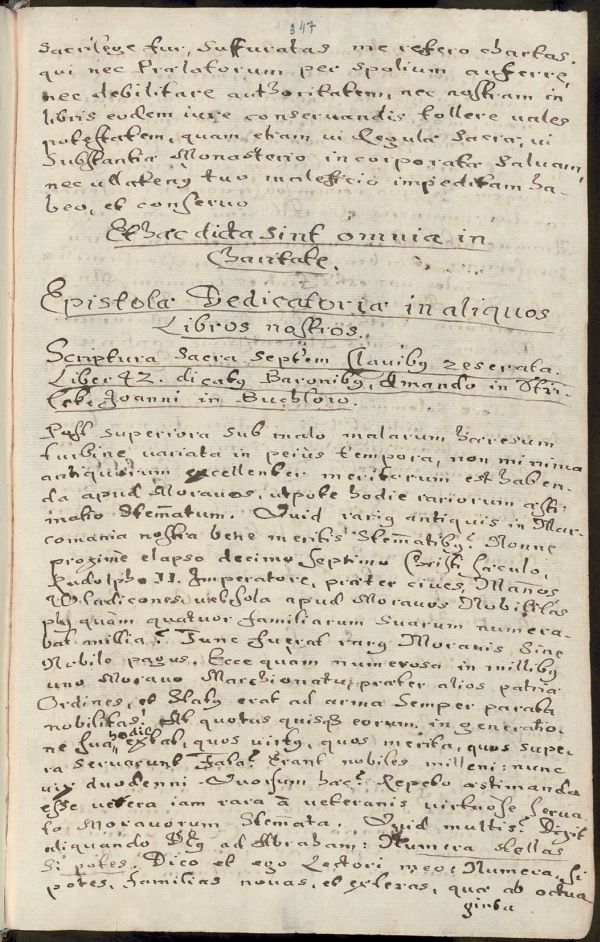 347
sacrilege fur, suffuratas me refero chartas.
qui nec Prælatorum per spolium auferre,
nec debilitare authoritatem, nec nostram in
libris eodem iure conservandis tollere vales
potestatem, quam etiam vi Regulæ Sacræ, vi
Substantiæ Monasterio incorporatæ Salvam,
nec ullatenq tuo maleficio impeditam ha-
beo, et conservo
Et hæc dicta sint omnia in
Charitate.
Epistolæ Dedicatoriæ in aliquos
Libros nostros.
Scriptura Sacra Septem Clavibq reserata.
Liber 42. dicatq Baronibq, Amando in
Joanni in Buchlow.
Post superiora sub malo malarum hæresum
turbine variata in peius tempora, non minima
antiquorum excellenter meritorum est haben-
da apud Moravos, utpote hodie rariorum æsti-
matio Stem̃atum. Quid rariq antiquis in Mar-
comania nostra bene meritis Stem̃atibq? Nonne
proxime elapso decimo septimo Christi sæculo,
Rudolpho II. Imperatore, præter cives,
Wladicones, vel sola apud Moravos Nobilitas
plq quàm quatuor familiarum suarum numera-
bat millia? Tunc fuerat rarq Moraviæ Sine
Nobile pagus. Ecce quàm numerosa in millibq
uno Moravo Marchionatu, præter alios patriæ
Ordines, et Statq erat ad arma Semper parata
nobilitas! At quotus quisq eorum, in generatio-
ne sua hodie extat, quos virtq, quos merita, quos supe-
ra servarunt Fata? Erant nobiles milleni: nunc
vix duodenni. Quorsum hæc? Repeto æstimanda
esse vetera iam rara à veteranis virtuose serva-
ta Moravorum Stemata. Quid multis? Dixit
aliquando Dq ad Abraham: Numera stellas
Si potes. Dico et ego Lectori meo: Numera, Si
potes, familias novas, et exteras, quæ ab octua
ginta